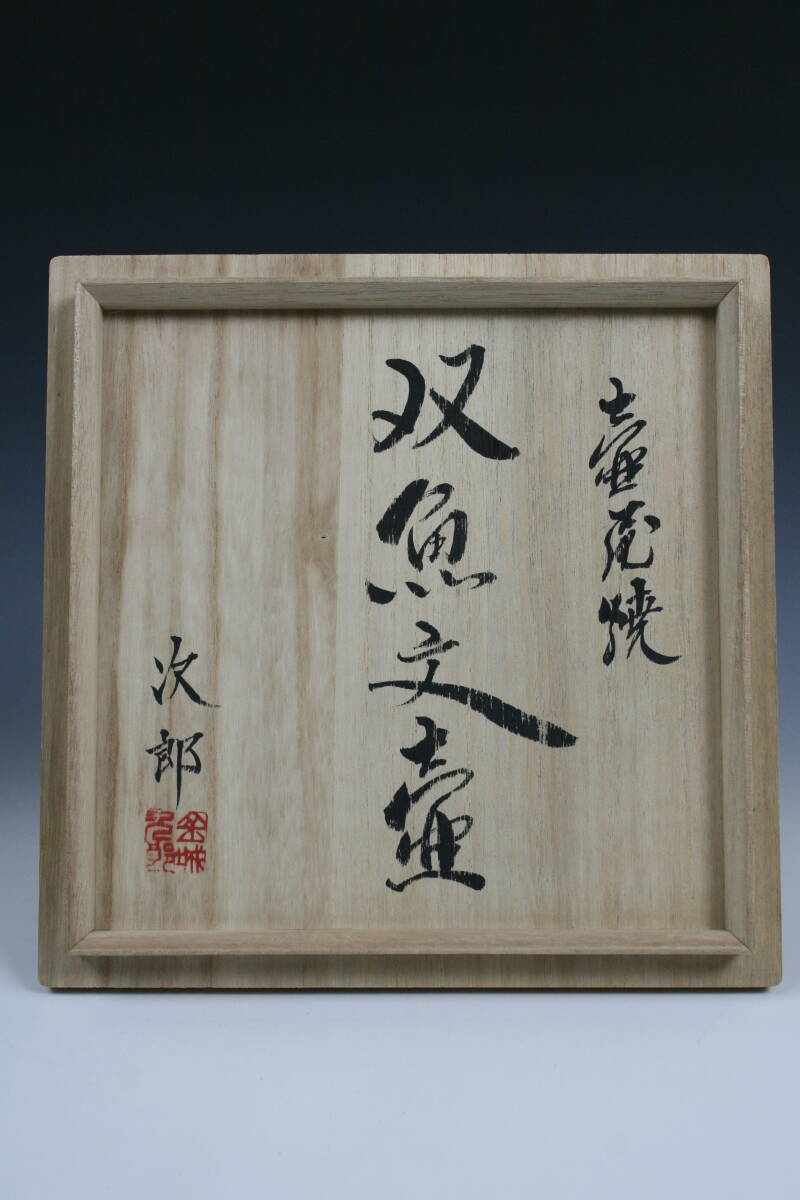 壷屋焼
双魚文壷
次郎
金城
次郎